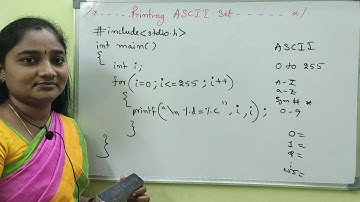 /*.....Printing ASCII Set......*/
#include<stdio.h>
int main()
{
int i;
for(i=0; i<=255; i++)
{
printf("\n %d=%c", i, i);
}
}
ASCII
0 to 255
A-Z
a-z
0-9
0=
1=